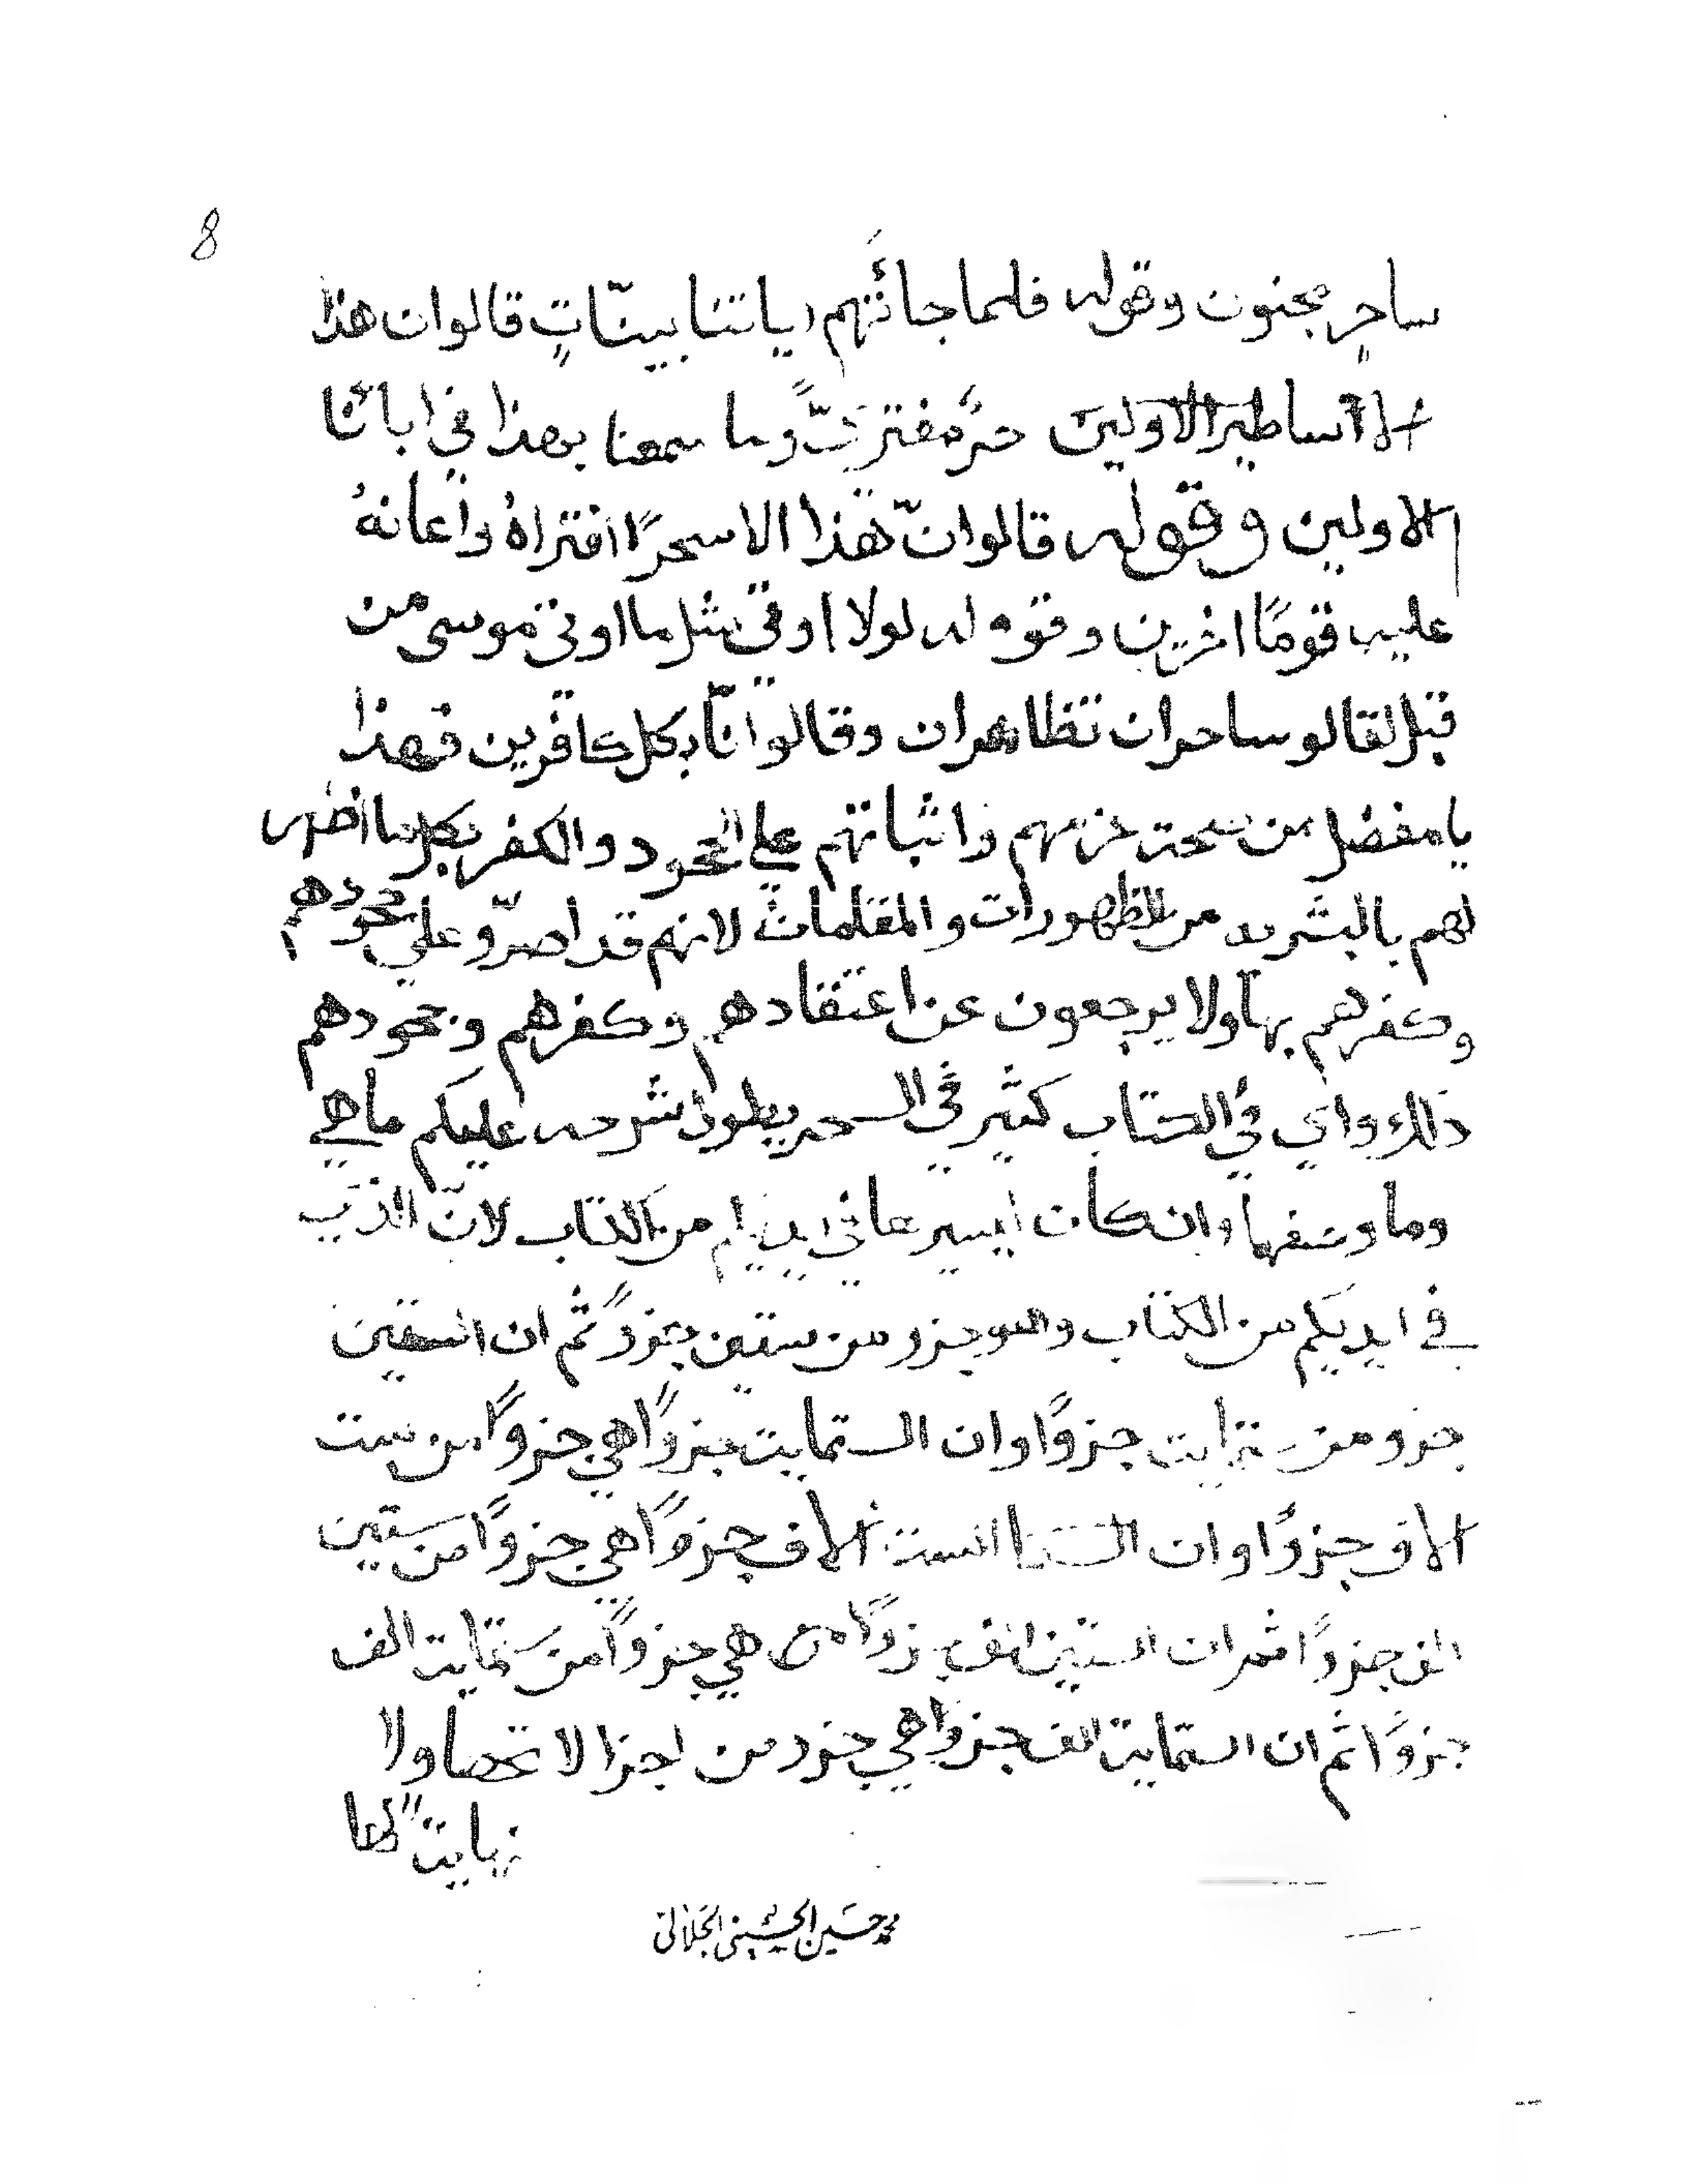 8
ساحرٍ مجنون وقوله فلما جائتهم اياتنا بيناتٍ قالوا ان هذا
الا اساطير الاولين سحرٌ مفتري وما سمعنا بهذا في ابائنا
الاولين وقوله قالوا انّ هذا الا سحرًا افتراهُ واعانهُ
عليه قومًا اخرين وقوله لولا اوتي مثل ما اوتي موسى من
قبل لقالو ساحران تظاهران وقالوا انّا بكل كافرين فهذا
يا مفضل من واثباتهم علي الجحود والكفر بكل ما اظهر
لهم بالبشريه من الظهورات والمقامات لانهم قد اصرّو علي جحودهم
وكفرهم بها ولا يرجعون عن اعتقادهم وكفرهم وجحودهم
ذلك واي في الكتاب كثير في السحر يطول شرحه عليكم ماهي
وما وان كان ايسير ما في ايديكم من الكتاب لانّ الذي
في ايديكم من الكتاب والهو جزو من ستين جزوً ثم ان الستين
جزو من ستمايت جزوًا وان الستمايت جزوًا هي جزوًا من ست
الاف جزوًا وان الست الاف جزوًا هي جزوًا من ستين
الف جزوًا ثم ان الستين الف جزوًا هي جزوًا من ستمايت الف
جزوًا ثم ان الستمايت الف جزوًا هي جزو من اجزا لا تحصا ولا
نهايتً لها
محمد حسين الحسيني الجلالي